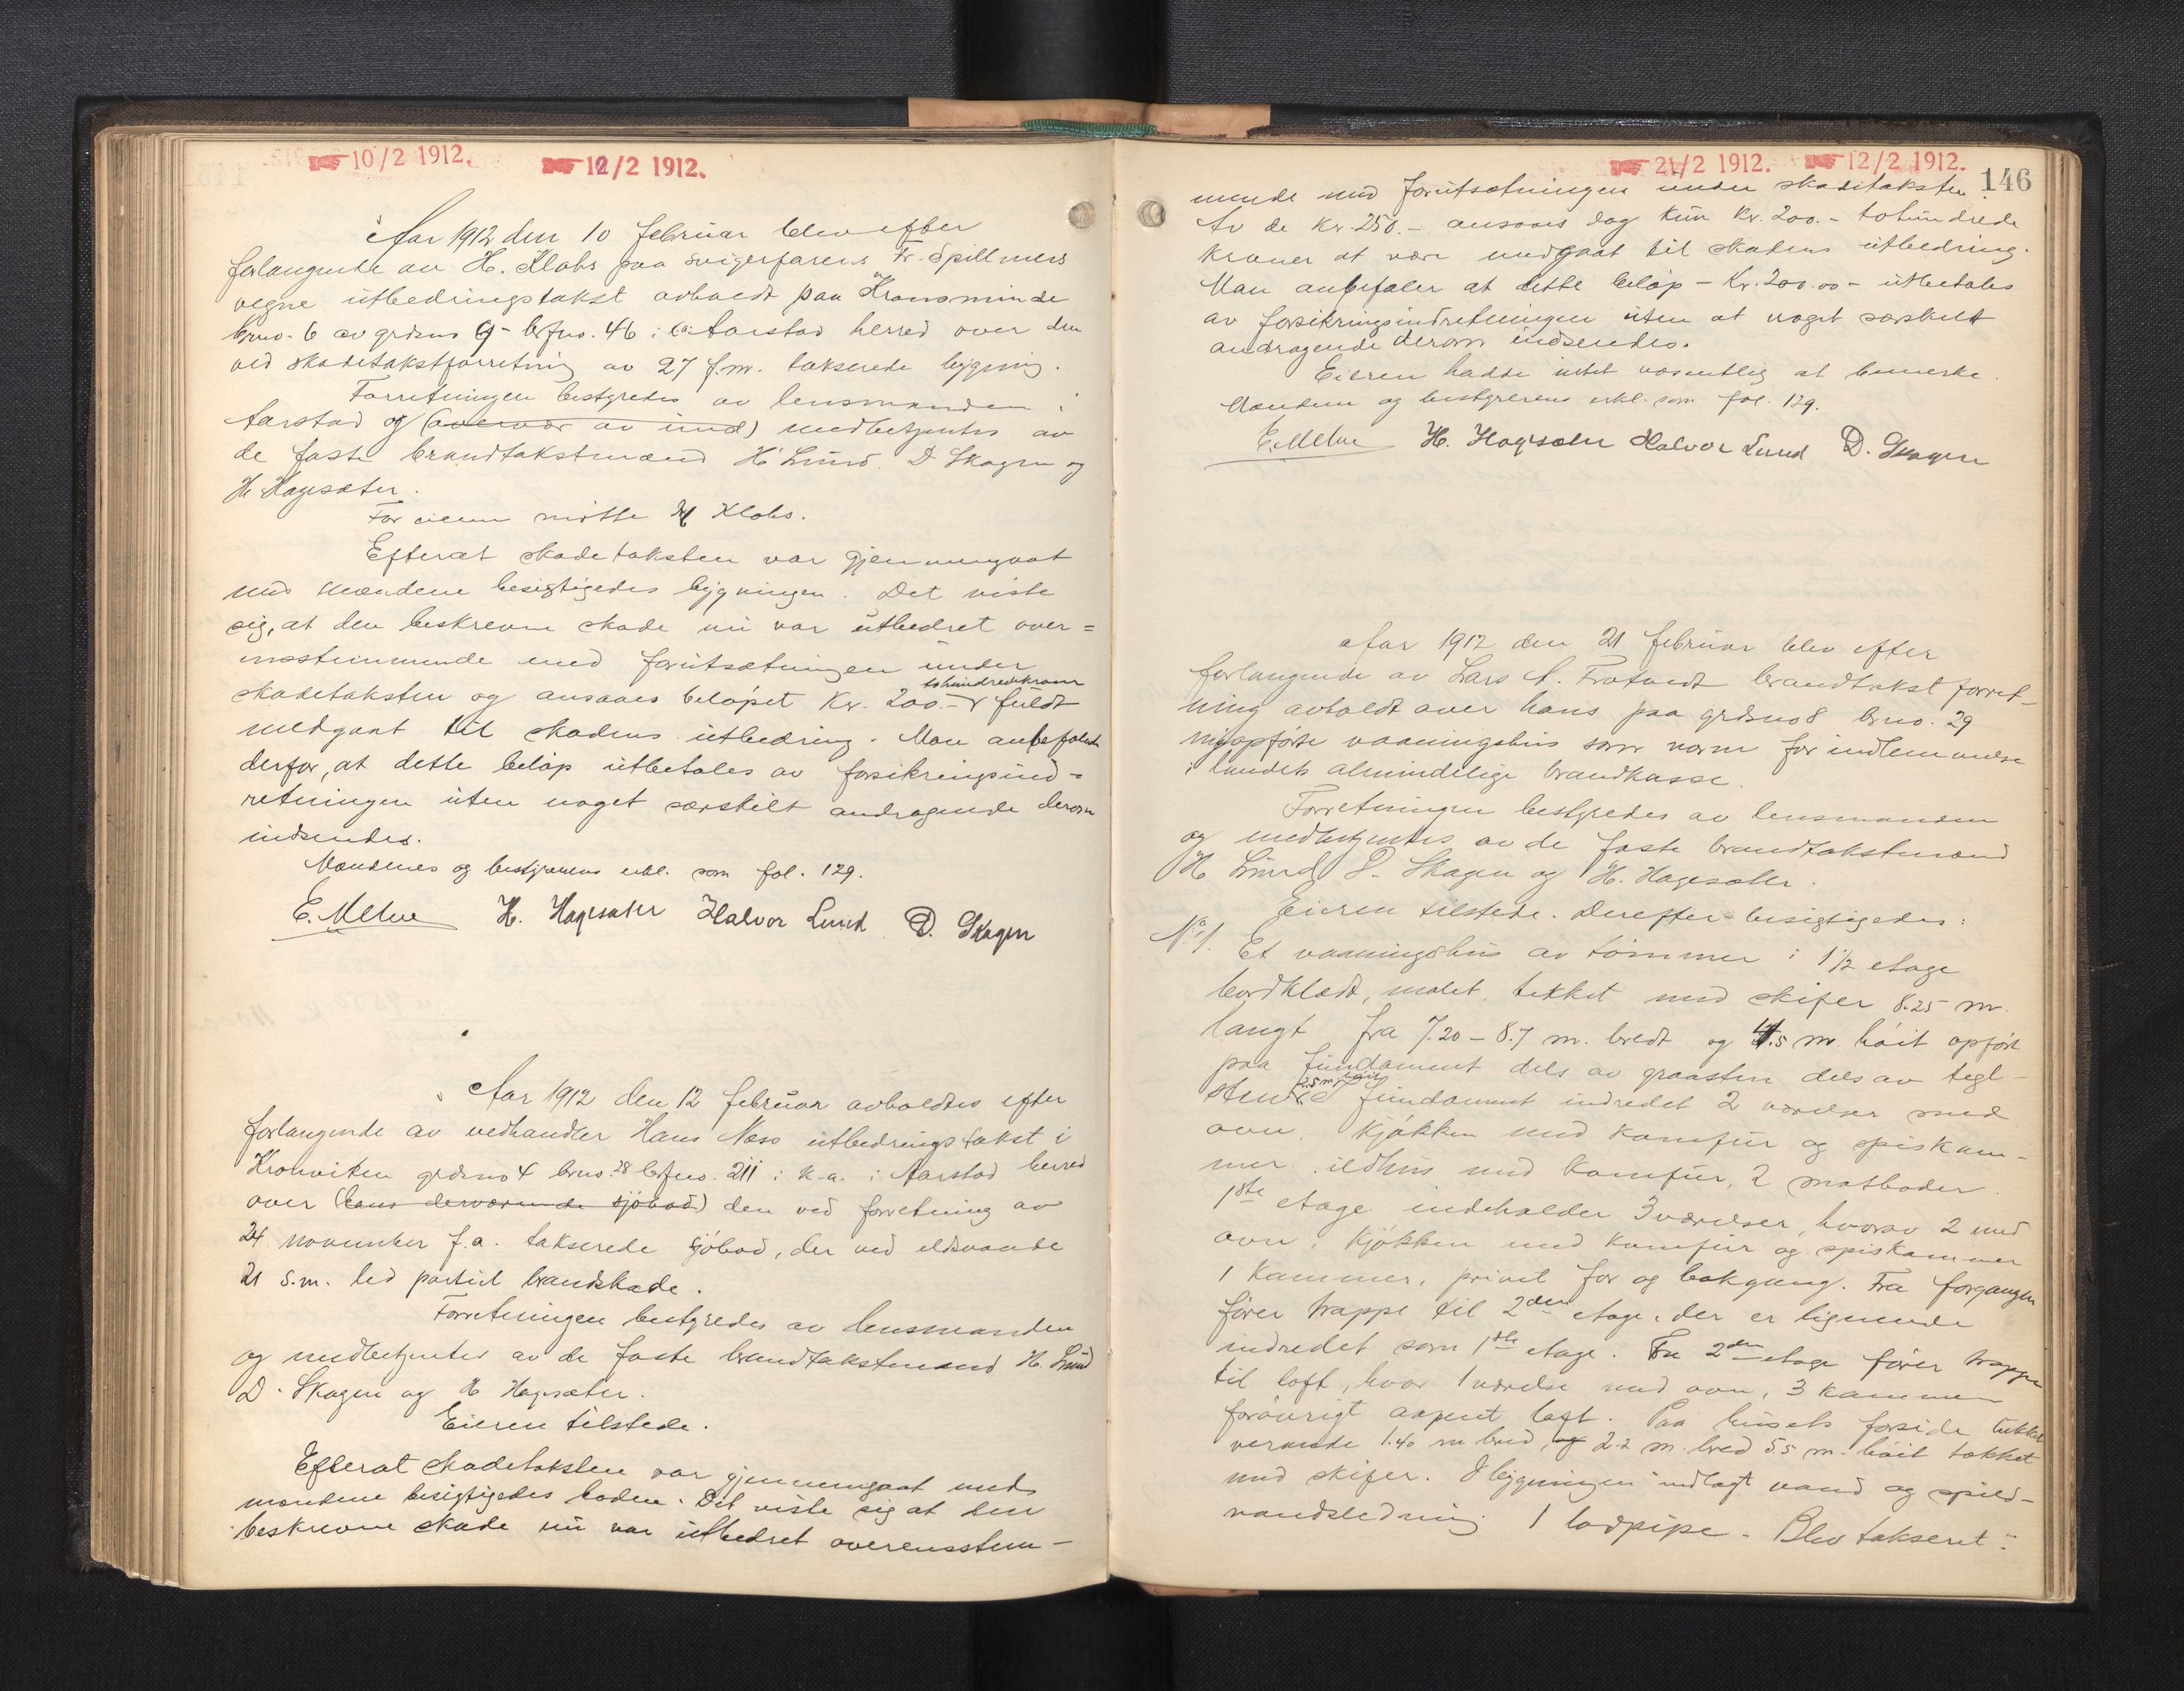 10/2 1912. 12/2 1912.
Aar 1912 den 10 februar blev efter
forlangende av H. Klohs paa svigerfarens Fr. Spillmers
vegne utbedringstakst avholdt paa Kronsminde
brno. 6 av grdsno 9 - brfno. 46 i Aarstad herred over den
ved skadetakstforretning av 27 f.m. takserede bygning.
Forretningen bestyredes av lensmanden i
Aarstad og (overvar av und) medbetjentes av
de faste brandtakstmænd H. Lund, D. Skagen og
H. Hagesæter.
For eieren møtte H Klohs.
Efterat skadetaksten var gjennemgaat
med mændene besigtigedes bygningen. Det viste
sig, at den beskrevne skade nu var utbedret over=
insstemmende med forutsætningen under
skadetaksten og ansaaes beløpet Kr. 200.- tohundredekroner fuldt
medgaat til skadens utbedring. Man anbefaler
derfor, at dette beløp utbetales av forsikringsind=
retningen uten noget særskilt andragende derom
indsendes.
Mændenes og bestyrerens erkl. som fol. 129.
E. Melve H. Hagesæter Halvor Lund D. Skagen
Aar 1912 den 12 februar avholdtes efter
forlangende av vedhandler Hans Næss utbedringstakst i
Kronviken grdsno 4 brno. 28 brfno. 211 i k.a. i Aarstad herred
over (hans derværende sjøbod) den ved forretning av
24 november f.a. takserede sjøbod, der ved eldsvaade
21 s.m. led partiel brandskade.
Forretningen bestyredes av lensmanden
og medbetjentes av de faste brandtakstmænd H. Lund
D. Skagen og H Hagesæter.
Eieren tilstede.
Efterat skadetaksten var gjennemgaat med
mændene besigtigedes boden. Det viste sig at den
beskrevne skade nu var utbedret overensstem-
21/2 1912. 12/2 1912. 146
mende med forutsætningen under skadetaksten
Av de Kr. 250.- ansaaes dog kun Kr. 200.- tohundrede
kroner at være medgaat til skadens utbedring.
Man anbefaler at dette beløp - Kr. 200.00 - utbetales
av forsikringsindretningen uten at noget særskilt
andragende derom indsendes.
Eieren hadde intet væsentlig at bemerke.
Mændenes og bestyrerens erkl. som fol. 129.
E. Melve H. Hagesæter Halvor Lund D. Skagen
Aar 1912 den 21 februar blev efter
forlangende av Lars A. Frotvedt brandtakst forret-
ning avholdt over hans paa grdsno 8 brno. 29
nyopførte vaaningshus som norm for indlemmelse
i landets almindelige brandkasse.
Forretningen bestyredes av lensmanden
og medbetjentes av de faste brandtakstmænd
H Lund D. Skagen og H. Hagesæter.
Eieren tilstede. Derefter besigtigedes:
No 1. Et vaaningshus av tømmer i 1 1/2 etage
bordklædt, malet, tækket med skifer 8.25 m.
langt fra 7.20 - 8.7 m. bredt og 4.5 m. høit opført
paa fundament dels av graasten dels av tegl
sten 2.5 m høit. I fundament indredet 2 værelser med
ovn, kjøkken med komfur og spiskam-
mer, ildhus med komfur, 2 matboder.
1ste etage indeholder 3 værelser, hvorav 2 med
ovn, kjøkken med komfur og spiskammer
1 kammer, privet for og bakgang. Fra forgangen
fører trappe til 2den etage, der er lignende
indredet som 1ste etage. Fra 2den etage fører trappe
til loft, hvor 1 værelse med ovn, 3 kammer
forøvrigt aapent loft. Paa husets forside lukket
veranda 1.40 m bred, og 2.2 m bred 5.5 m. høit tækket
med skifer. I bygningen indlagt vand og spild-
vandsledning 1 lodpipe. Blev takseret: